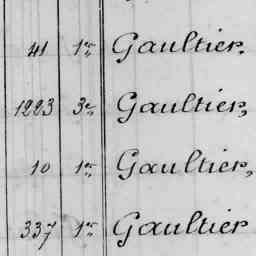 41 1er Gaultier.
1223 3e Gaultier,
10 1er Gaultier,
337 1er Gaultier